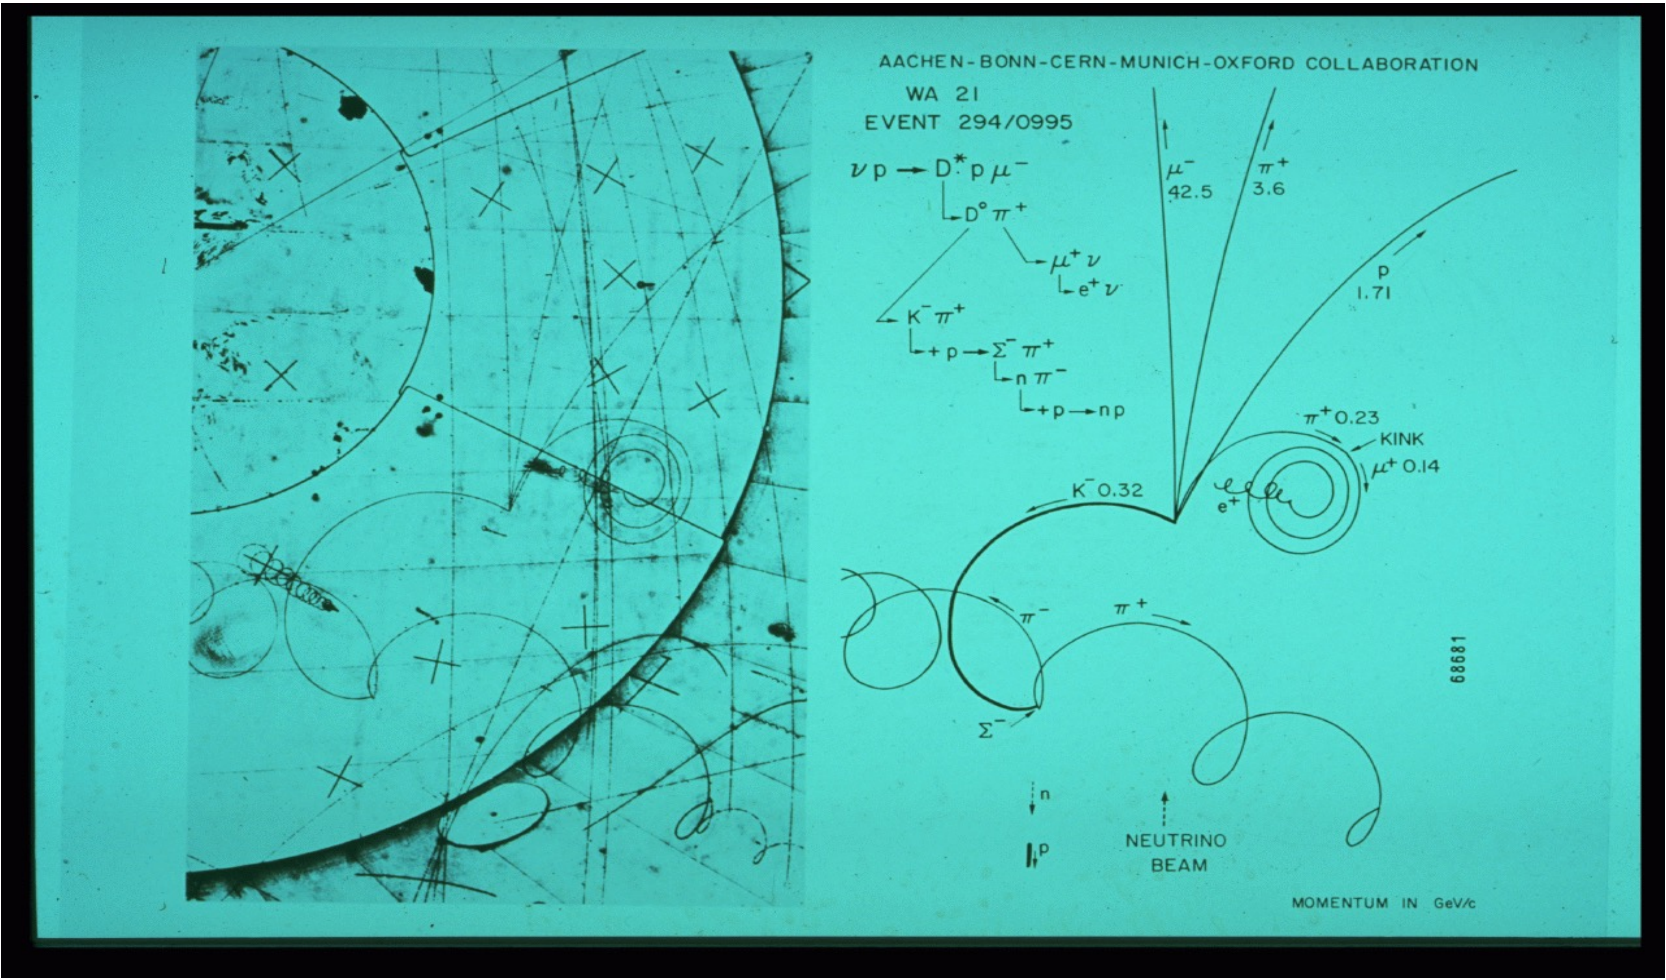 AACHEN-BONN-CERN-MUNICH-OXFORD COLLABORATION
WA 21
EVENT 294/0995
ν p → D* p μ⁻
D° π⁺
μ⁺ ν
e⁺ ν
K⁻ π⁺
+ p → Σ⁻ π⁺
n π⁻
+ p → n p
μ⁻
42.5
π⁺
3.6
p
1.71
π⁺ 0.23
KINK
μ⁺ 0.14
e⁺
K⁻ 0.32
π⁻
π⁺
Σ⁻
n
p
NEUTRINO
BEAM
68681
MOMENTUM IN GeV/c